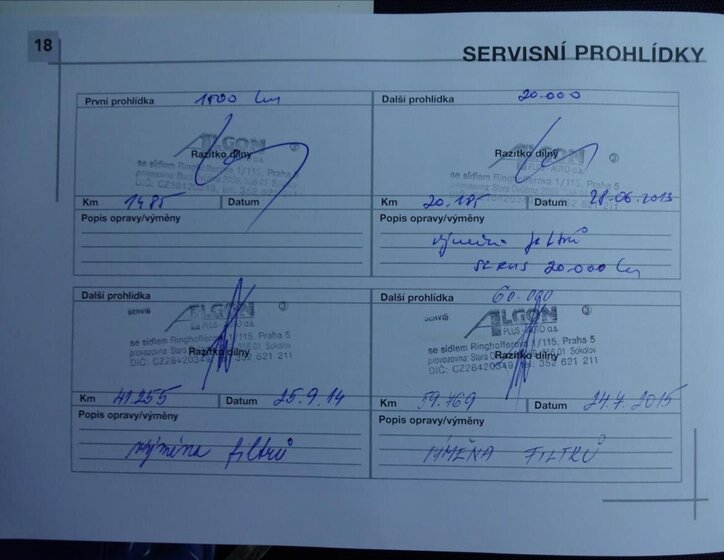 18
SERVISNÍ PROHLÍDKY
První prohlídka 1500 km
ALGON
PLUS - AUTO a.s.
Razítko dílny
se sídlem Ringhofferova 1/115, Praha 5
provozovna Stará
DIČ: CZ28420349, tel. 352 621 211
Km 1485 Datum
Popis opravy/výměny
Další prohlídka 20.000
ALGON
PLUS - AUTO a.s.
Razítko dílny
se sídlem Ringhofferova 1/115, Praha 5
provozovna Stará
DIČ: CZ28420349, tel. 352 621 211
Km 20.185 Datum 28.06.2013
Popis opravy/výměny
výměna filtrů
SERVIS 20.000 km
Další prohlídka
SERVIS ALGON
PLUS - AUTO a.s.
se sídlem Ringhofferova 1/115, Praha 5
provozovna Stará Sokolov
Razítko dílny
DIČ: CZ28420349, tel. 352 621 211
Km 41.255 Datum 25.9.14
Popis opravy/výměny
výměna filtrů
Další prohlídka 60.000
SERVIS ALGON
PLUS - AUTO a.s.
se sídlem Ringhofferova 1/115, Praha 5
provozovna Stará Sokolov
Razítko dílny
DIČ: CZ28420349, tel. 352 621 211
Km 59.169 Datum 24.7.2015
Popis opravy/výměny
VÝMĚNA FILTRŮ